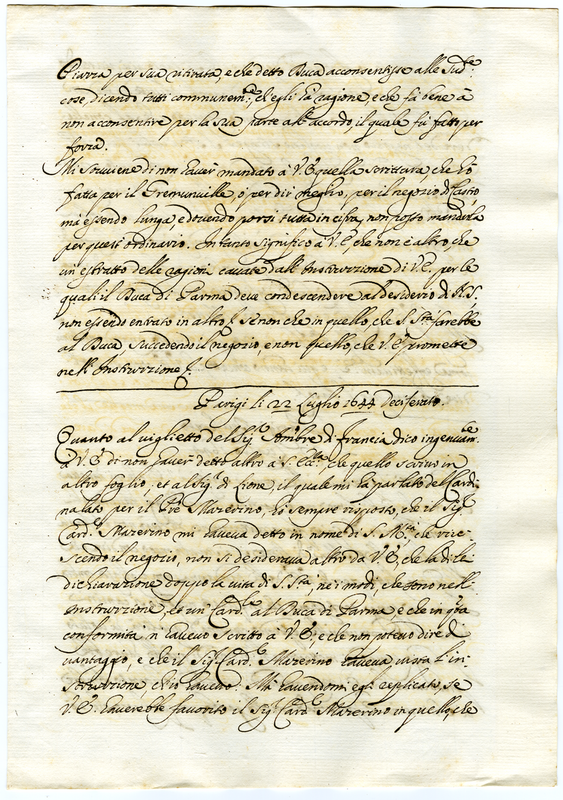 Piazza per sua ritirata, e che detto Duca acconsentisse alle Sud.te
cose, dicendo tutti communem.te ch'egli hà ragione, e che fà bene à
non acconsentire per la sua parte all'accordo, il quale fù fatto per
forza.
Mi souuiene di non hauer mandato à V. E. quella scrittura, che hò
fatta per il Gremonuille, ò per dir meglio, per il negozio di Castro,
mà essendo lunga e douendo porsi tutta in cifra, non posso mandarla
per quest'ordinario. Intanto significo à V. E., che non è altro, che
un'estratto delle ragioni cauate dall'Instruzzione di V. E. per le
quali il Duca di Parma deue condescendere al desiderio di N. S.
non essendo entrato in altro, se non che in quello, che S. S.tà farebbe
al Duca, succedendo il negozio, e non quello, che V. E. promette
nell'Instruzzione
Parigi li 22 Luglio 1644 deciferato.
Quanto al uiglietto del Sig.r Amb.re di Francia, dico ingenuam.te
à V. E. di non hauer detto altro à S. Ecc.za che quello scriuo in
altro foglio, et al Sig.r di Lione, il quale mi hà parlato del Cardi
nalato per il P.re Mazerino, hò sempre risposto, che il Sig.r
Card.l Mazerino mi haueua detto in nome di S. M.tà che riu
scendo il negozio, non si desideraua altro da V. E. che la di lei
dichiarazione doppo la uita di S. S.tà, ne i modi, che sono nell'
Instruzzione, et un Card.le al Duca di Parma, e che in q.ta
conformità n'haueuo scritto à V. E., e che non poteuo dire di
uantaggio, e che il Sig.r Card.l Mazerino haueua uista l'in
struzzione, ch'io haueuo. Mà hauendomi egli replicato, se
V. E. hauerebbe fauorito il Sig.r Card.l Mazerino in quello, che